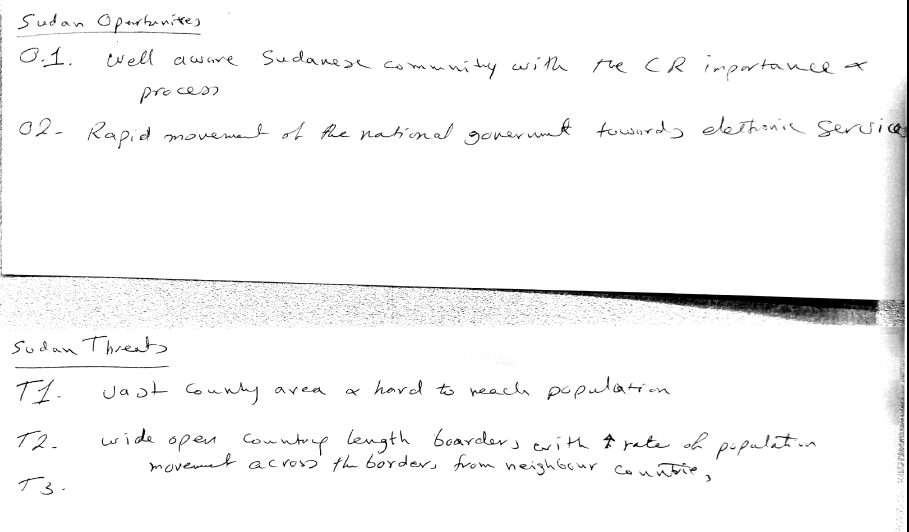 Sudan Oportunites
O.1. well aware Sudanese community with the CR importance &
process
O2- Rapid movement of the national government towards electronic services
Sudan Threats
T1. vast county area & hard to reach population
T2- wide open country length boarders with ↑ rate of population
movement across the borders from neighbour countries
T3.